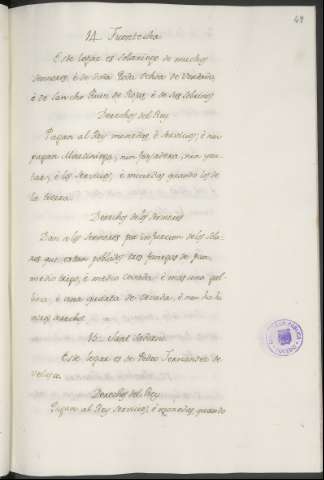 49
14 Fuenteodra
Este logar es solariego de muchos
sennores, é de Doña
é de Sancho Ruiz de Rojas, é de sus sobrinos
Derechos del Rey
Pagan al Rey monedas, é servicios; é non
pagan Martiniega, nin fonsadera, nin yan-
tar; é los servicios, é monedas quando los de
la tierra.
Derechos de los Sennores
Dan a los sennores por infurcion de los sola-
res que estan poblados tres fanegas de pan,
medio trigo, é medio cevada, é mas una ga-
llina, é una quarta de cevada, é non ha hi
mas derechos.
Este logar es de Pedro Fernandez de
Velasco.
Derechos del Rey
Pagan al Rey servicios, é monedas, quando